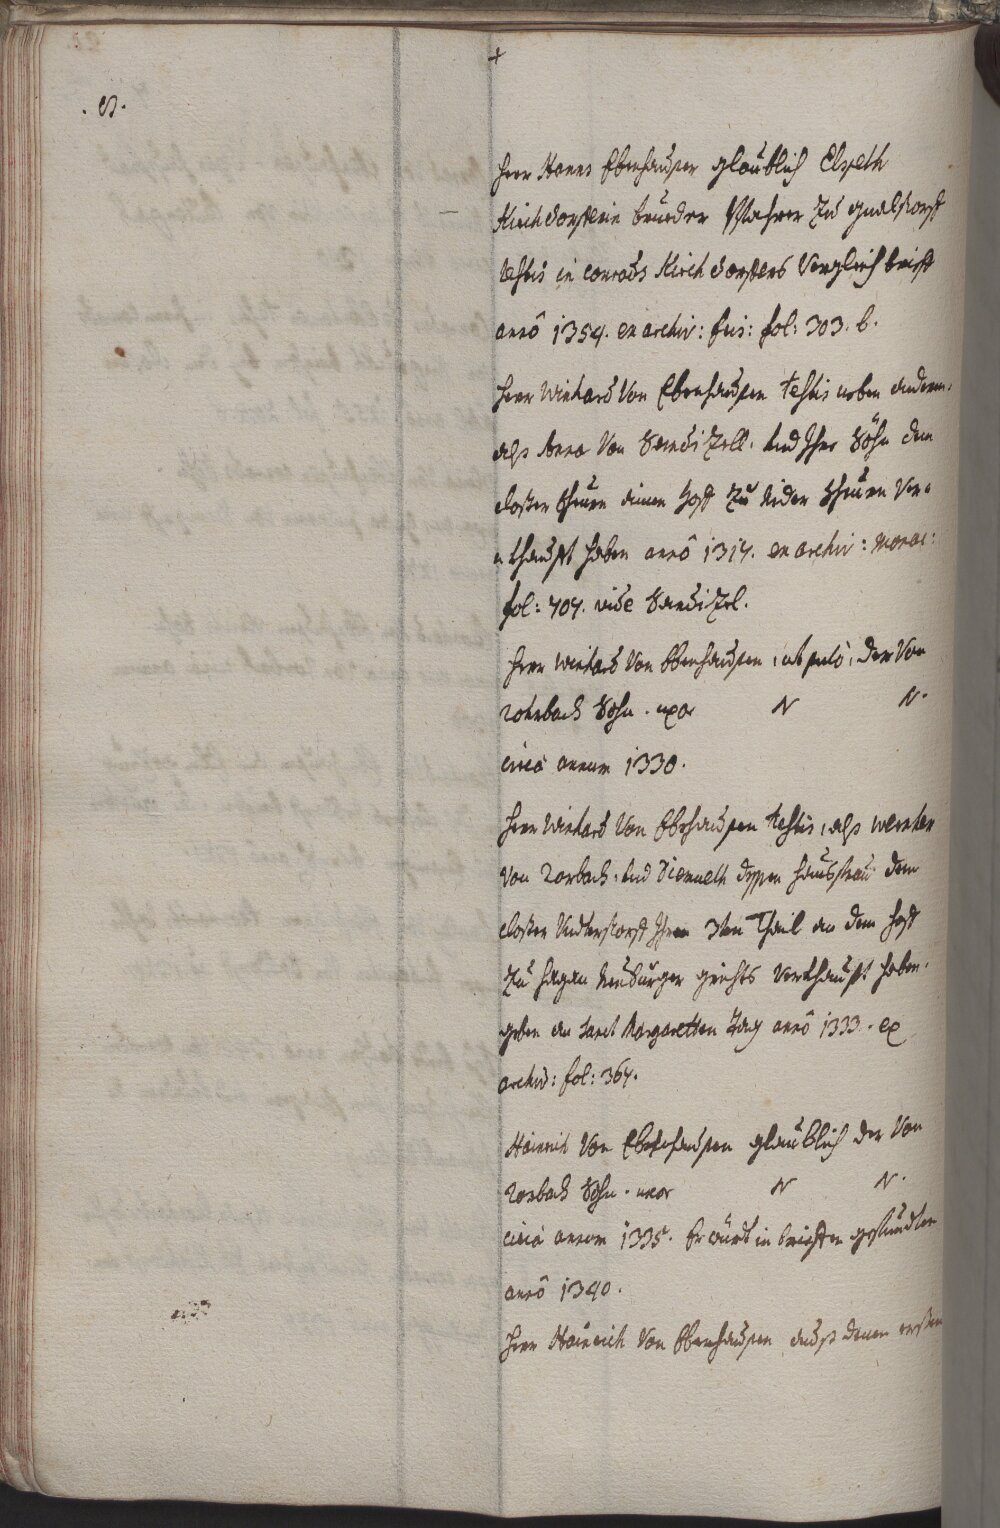 +
Herr Hanns Ebenhauser glaublich Elspeth
Kirchdorfferin brueder Pfahrer zu
testis in Conrads Kirchdorffers Verglichbrieff
anno 1354. ex archiv: fris: fol: 303. b.
Herr Winhard Von Ebenhausen testis neben anderen.
alß Anna Von Sandizell. und Ihre Söhn dem
closter Scheurn ainen Hoff zu Nider Scheurn Ver-
khaufft haben anno 1317. ex archiv: Monac:
fol: 707. vide Sandizel.
Herr Winhard Von Ebenhausen, ut puto, der Von
Rohrbach Sohn. uxor N N.
circa annum 1330.
Herr Winhard Von Ebehausen testis, alß Wernher
Von Rorbach. und Diemueth dessen Haußfrau dem
closter Understorff Ihren 3ten Thail an dem Hoff
zu Hagau Neuburger grichts Verkhaufft haben.
geben an Sanct Margaretten Tag anno 1333. ex
archiv: fol: 367.
Hainrich Von Ebenhausen glaublich der Von
Rorbach Sohn. uxor N N.
circa annum 1335. Er würdt in brieffen gefundten
anno 1340.
Herr Hainrich Von Ebenhausen auß denen ersten